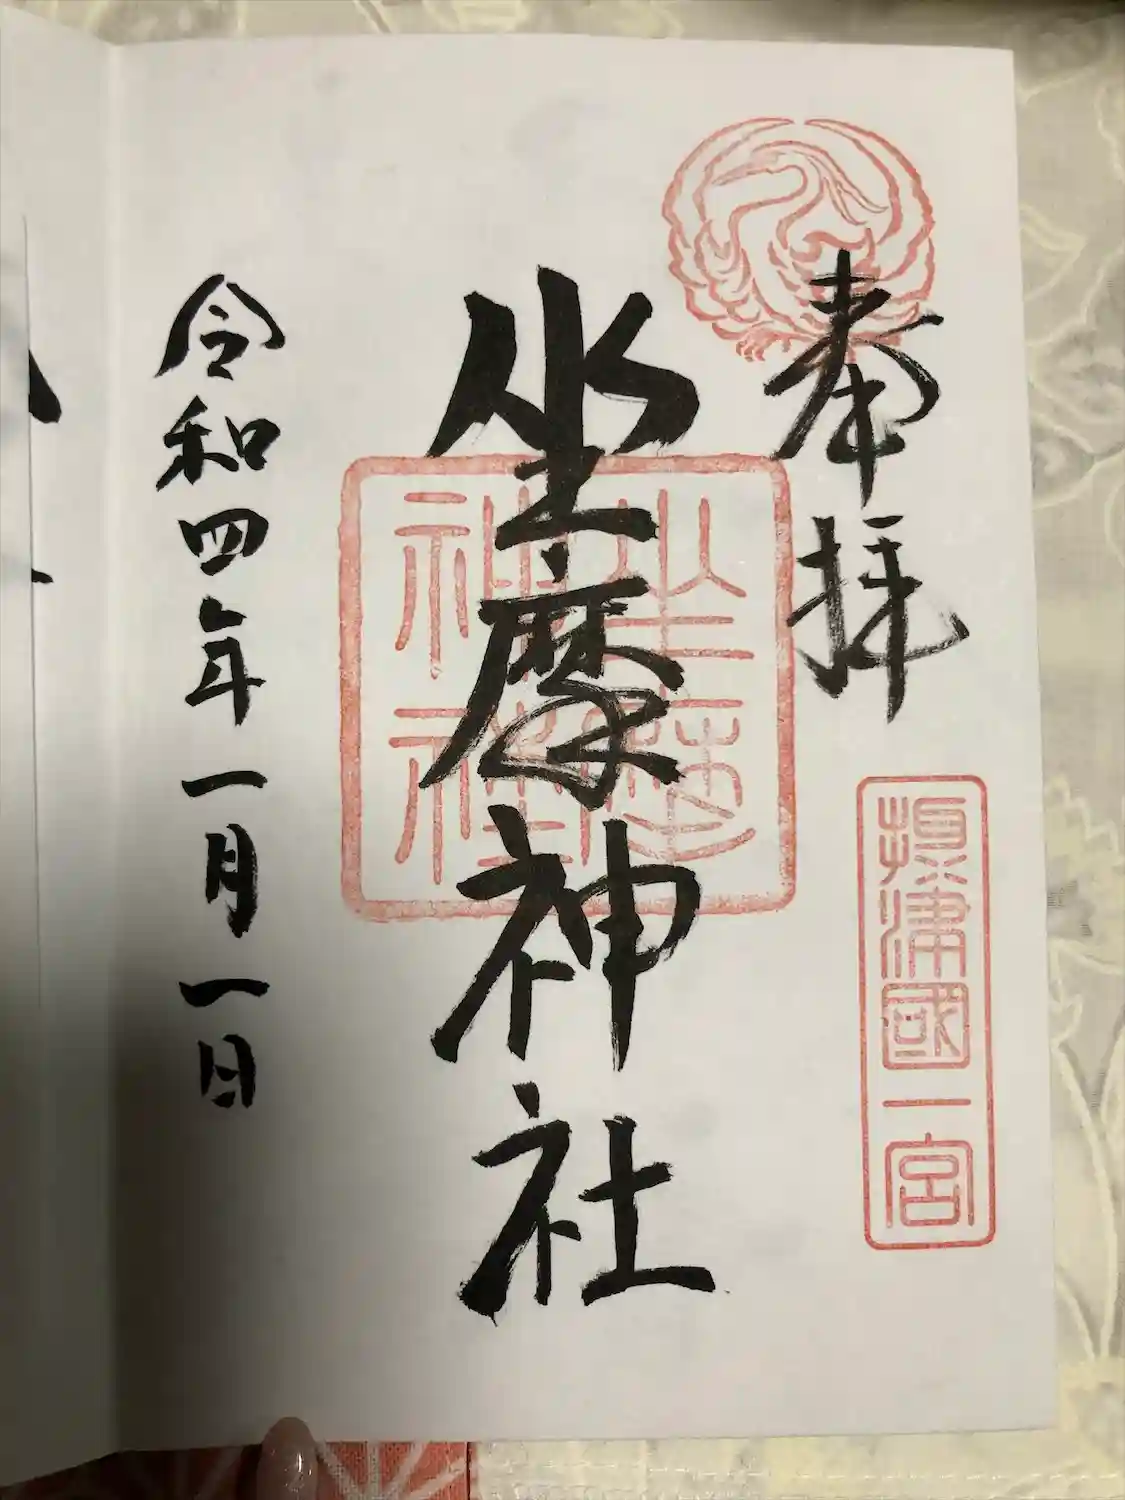 奉拝
摂津國一宮
坐摩神社
坐摩神社
令和四年一月一日